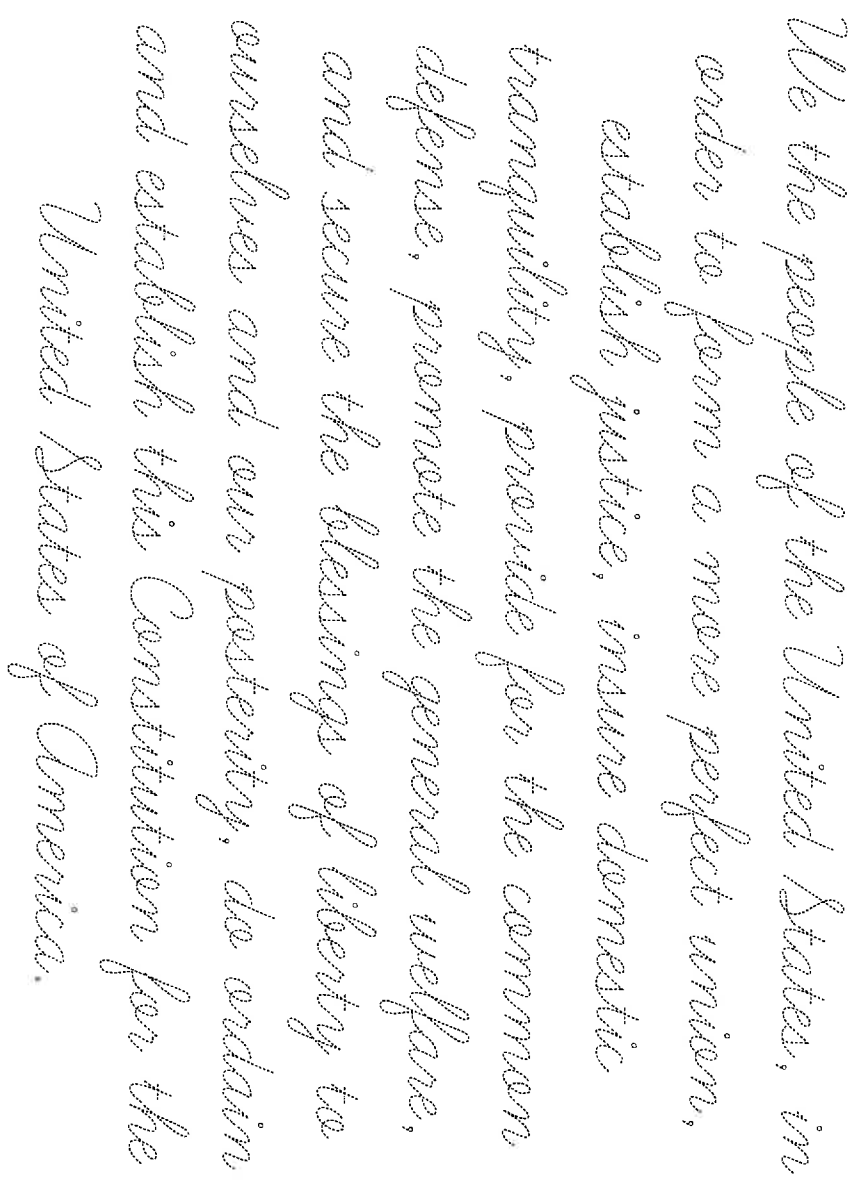 We the people of the United States, in
order to form a more perfect union,
establish justice, insure domestic
tranquility, provide for the common
defense, promote the general welfare,
and secure the blessings of liberty to
ourselves and our posterity, do ordain
and establish this Constitution for the
United States of America.